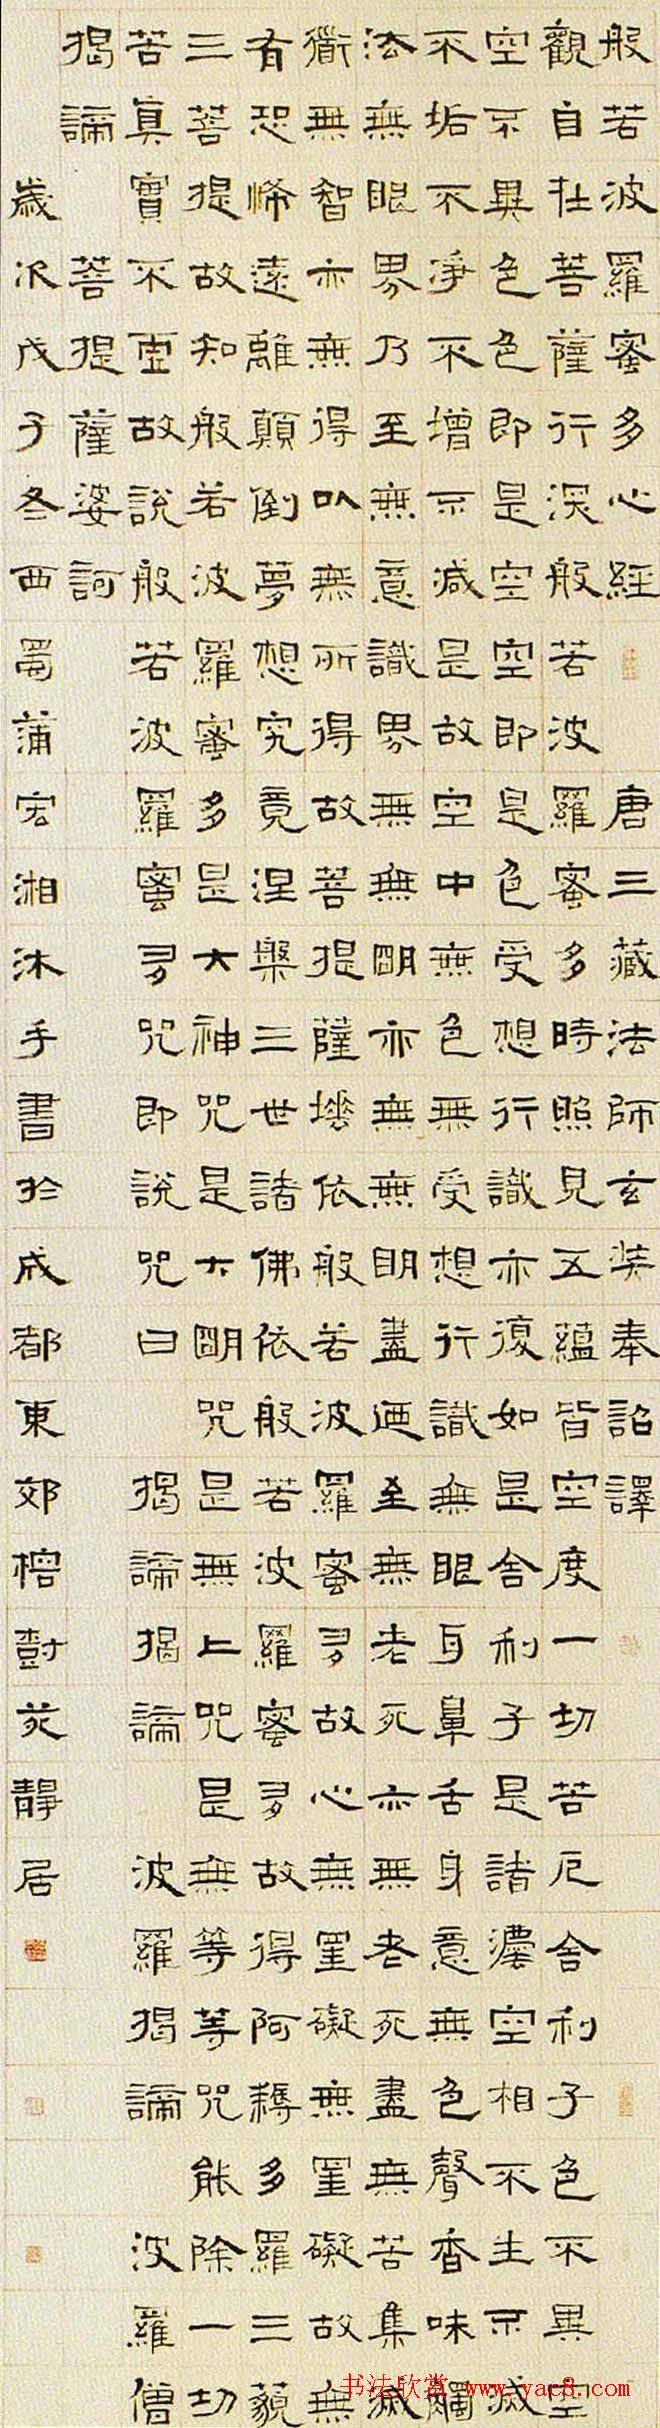 般若波羅蜜多心經 唐三藏法師玄奘奉詔譯
觀自在菩薩行深般若波羅蜜多時照見五蘊皆空度一切苦厄舍利子色不異空
空不異色色即是空空即是色受想行識亦復如是舍利子是諸法空相不生不滅
不垢不淨不增不減是故空中無色無受想行識無眼耳鼻舌身意無色聲香味觸
法無眼界乃至無意識界無無明亦無無明盡迺至無老死亦無老死盡無苦集滅
衜無智亦無得以無所得故菩提薩埵依般若波羅蜜多故心無罣礙無罣礙故無
有恐怖遠離顛倒夢想究竟涅槃三世諸佛依般若波羅蜜多故得阿耨多羅三藐
三菩提故知般若波羅蜜多是大神咒是大明咒是無上咒是無等等咒能除一切
苦真實不虛故說般若波羅蜜多咒即說咒曰 揭諦揭諦 波羅揭諦 波羅僧
揭諦 菩提薩婆訶
歲次戊子冬西蜀蒲宏湘沐手書於成都東郊榕樹苑靜居
书法欣赏 www.yac8.com